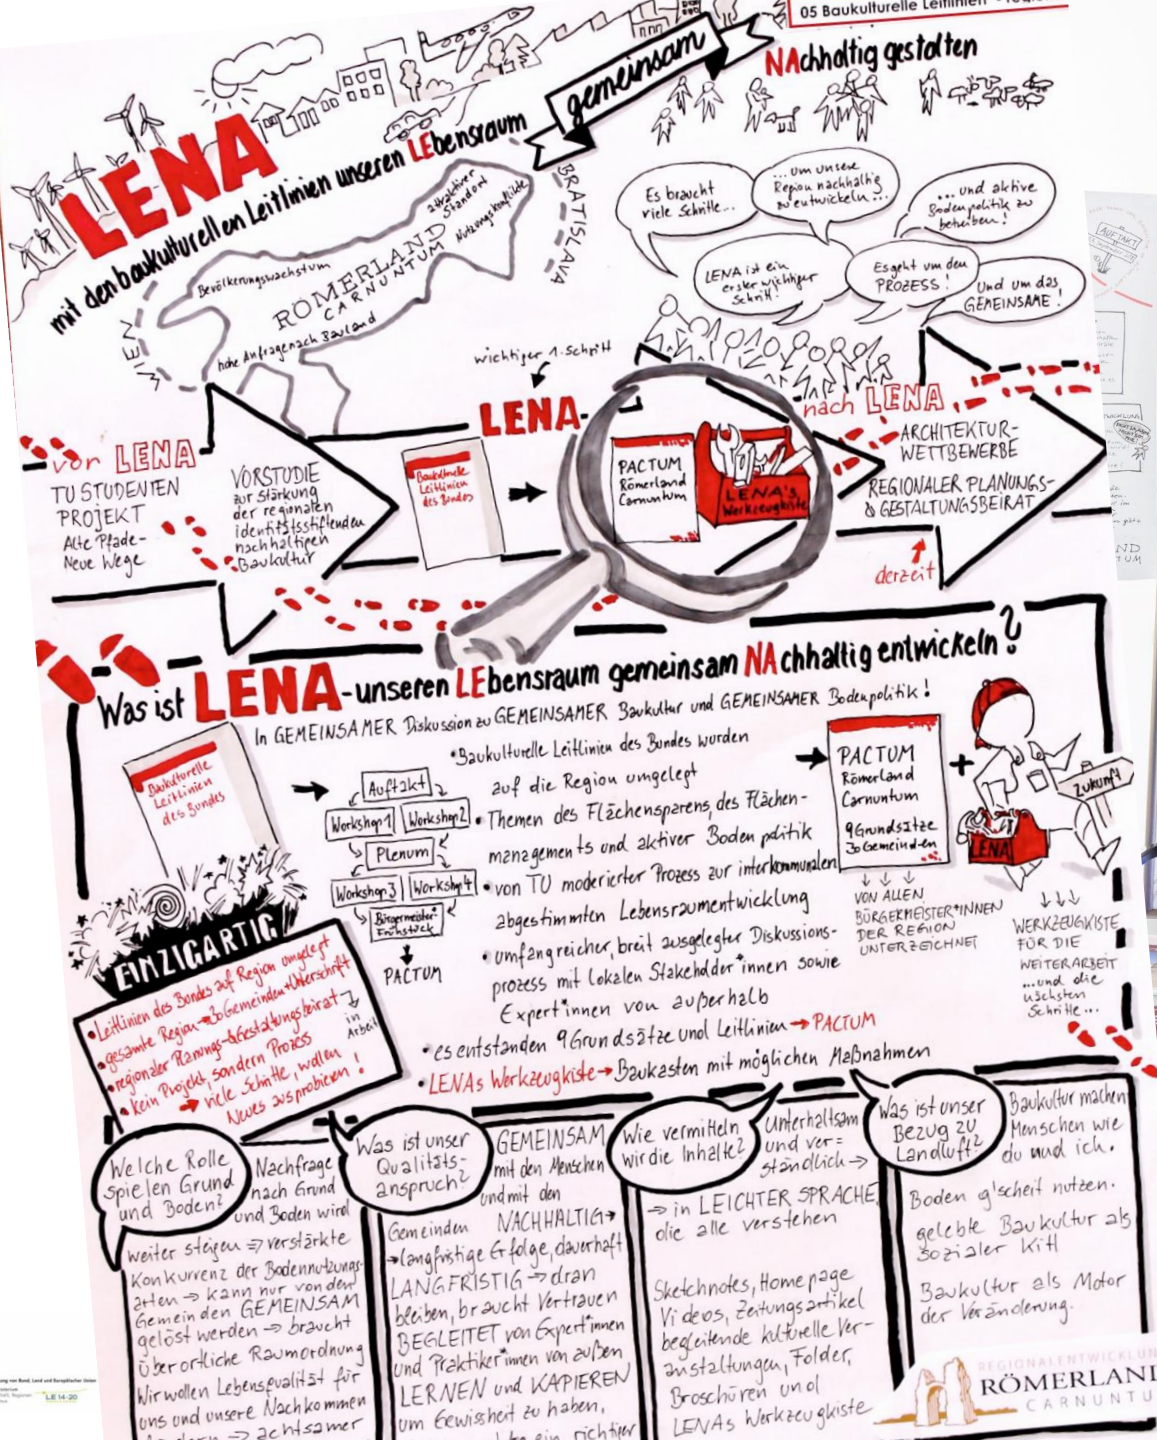 05 Baukulturelle Leitlinien
LENA
mit den baukulturellen Leitlinien unseren LEbensraum
gemeinsam
NAchhaltig gestalten
WIEN
BRATISLAVA
Bevölkerungswachstum
RÖMERLAND
CARNUNTUM
attraktiver
Standort
Nutzungskonflikte
hohe Anfrage nach Bauland
Es braucht
viele Schritte...
...um unsere
Region nachhaltig
zu entwickeln...
...und aktive
Bodenpolitik zu
betreiben!
LENA ist ein
erster wichtiger
Schritt!
Es geht um den
PROZESS!
Und um das
GEMEINSAME!
wichtiger 1. Schritt
LENA-
vor LENA
TU STUDENTEN
PROJEKT
Alte Pfade-
Neue Wege
VORSTUDIE
zur Stärkung
der regionalen
identitätsstiftenden
nachhaltigen
Baukultur
Baukulturelle
Leitlinien
des Bundes
PACTUM
Römerland
Carnuntum
LENA's
Werkzeugkiste
nach LENA
ARCHITEKTUR-
WETTBEWERBE
REGIONALER PLANUNGS-
& GESTALTUNGSBEIRAT
derzeit
Was ist LENA-unseren LEbensraum gemeinsam NAchhaltig entwickeln?
In GEMEINSAMER Diskussion zu GEMEINSAMER Baukultur und GEMEINSAMER Bodenpolitik!
Baukulturelle
Leitlinien
des Bundes
Auftakt
Workshop 1
Workshop 2
Plenum
Workshop 3
Workshop 4
Bürgermeister-
Frühstück
PACTUM
• Baukulturelle Leitlinien des Bundes wurden
auf die Region umgelegt
• Themen des Flächensparens, des Flächen-
managements und aktiver Bodenpolitik
• von TU moderierter Prozess zur interkommunalen
abgestimmten Lebensraumentwicklung
• umfangreicher, breit ausgelegter Diskussions-
prozess mit lokalen Stakeholder*innen sowie
Expert*innen von außerhalb
• es entstanden 9 Grundsätze und Leitlinien → PACTUM
• LENAs Werkzeugkiste → Baukasten mit möglichen Maßnahmen
PACTUM
Römerland
Carnuntum
9 Grundsätze
30 Gemeinden
+
VON ALLEN
BÜRGERMEISTER*INNEN
DER REGION
UNTERZEICHNET
LENA
Zukunft
WERKZEUGKISTE
FÜR DIE
WEITERARBEIT
...und die
nächsten
Schritte...
EINZIGARTIG
• Leitlinien des Bundes auf Region umgelegt
• gesamte Region → 30 Gemeinden + Unterschrift
• regionaler Planungs- & Gestaltungsbeirat →
in
Arbeit
• kein Projekt, sondern Prozess
→ viele Schritte, wollen
Neues ausprobieren!
Welche Rolle
spielen Grund
und Boden?
Nachfrage
nach Grund
und Boden wird
weiter steigen ⇒ verstärkte
Konkurrenz der Bodennutzungs-
arten → kann nur von den
Gemeinden GEMEINSAM
gelöst werden → braucht
überörtliche Raumordnung
Wir wollen Lebensqualität für
uns und unsere Nachkommen
→ achtsamer
Was ist unser
Qualitäts-
anspruch?
GEMEINSAM
mit den Menschen
und mit den
Gemeinden
NACHHALTIG →
→ langfristige Erfolge, dauerhaft
LANGFRISTIG → dran
bleiben, braucht Vertrauen
BEGLEITET von Expert*innen
und Praktiker*innen von außen
LERNEN und KAPIEREN
um Gewissheit zu haben,
ein richtiger
Wie vermitteln
wir die Inhalte?
Unterhaltsam
und ver=
ständlich →
→ in LEICHTER SPRACHE,
die alle verstehen
Sketchnotes, Homepage
Videos, Zeitungsartikel
begleitende kulturelle Ver-
anstaltungen, Folder,
Broschüren und
LENAs Werkzeugkiste
Was ist unser
Bezug zu
Landluft?
Baukultur machen
Menschen wie
du und ich.
Boden g'scheit nutzen.
gelebte Baukultur als
sozialer Kitt
Baukultur als Motor
der Veränderung.
REGIONALENTWICKLUN
RÖMERLAN
CARNUNTU
LE 14-20
AUFTAKT